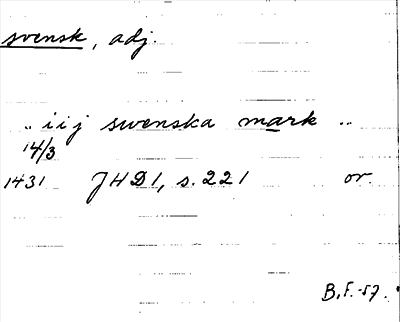 svensk, adj.
.. iij swenska mark ..
14/3
1431 JHD1, s. 221 or.
B.F.-57.